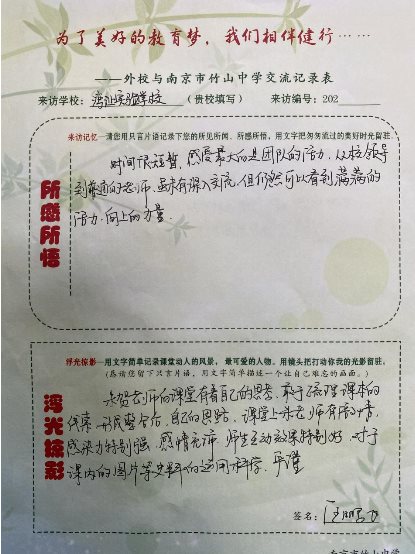 为了美好的教育梦，我们相伴健行……
——外校与南京市竹山中学交流记录表
来访学校：湾沚实验学校（贵校填写） 来访编号：202
来访记忆—请您用只言片语记录下您的所见所闻、所感所悟，用文字把匆匆流过的美好时光留驻。
所感所悟
时间很短暂，感受最大的是团队的活力，从校领导
到普通的老师，虽未有深入交流，但仍然可以看到满满的
活力，向上的力量。
浮光掠影—用文字简单记录课堂动人的风景，最可爱的人物。用镜头把打动你我的光影留驻。
（恳请您留下只言片语，用文字简单描述一个让自己难忘的画面。）
浮光掠影
老师的课堂有着自己的思考，敢于梳理课本的
线索，形成整合后，自己的思路，课堂上老师有激情，
感染力特别强，感情充沛，师生互动效果特别好，对于
课内的图片等史料的运用科学、严谨
签名：
南京市竹山中学